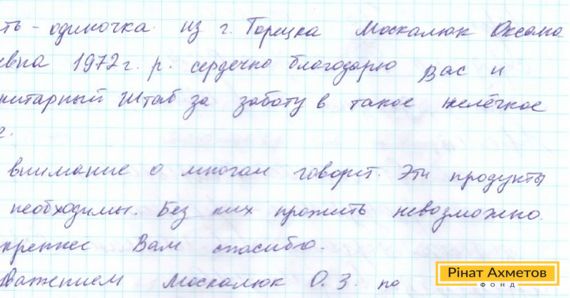 ть - одиночка из г. Торецка Москалюк Оксана
евна 1972 г. р. сердечно благодарю Вас и
нитарный Штаб за заботу в такое нелёгкое
г.
внимание о многом говорит. Эти продукты
необходимы. Без них прожить невозможно
крепнес Вам спасибо.
важением Москалюк О. З. по
Рінат Ахметов
ФОНД